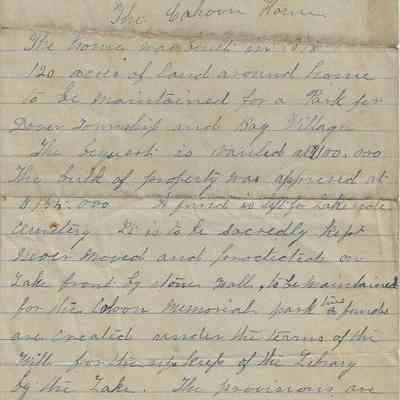 The Cahoon Home
The home was built in 1818
120 acres of land around home
to be maintained for a Park for
Dover Township and Bay Village
The bequest is valued at $100.000
The bulk of property was appraised at
$ 155.000 A fund is left to Lake side
Cemetery It is to be sacredly kept
Never Moved and protected on
Lake front by stone wall, to be maintained
for the Cahoon Memorial park funds
are created under the terms of the
Will for the upkeep of the Library
by the Lake. The provisions are